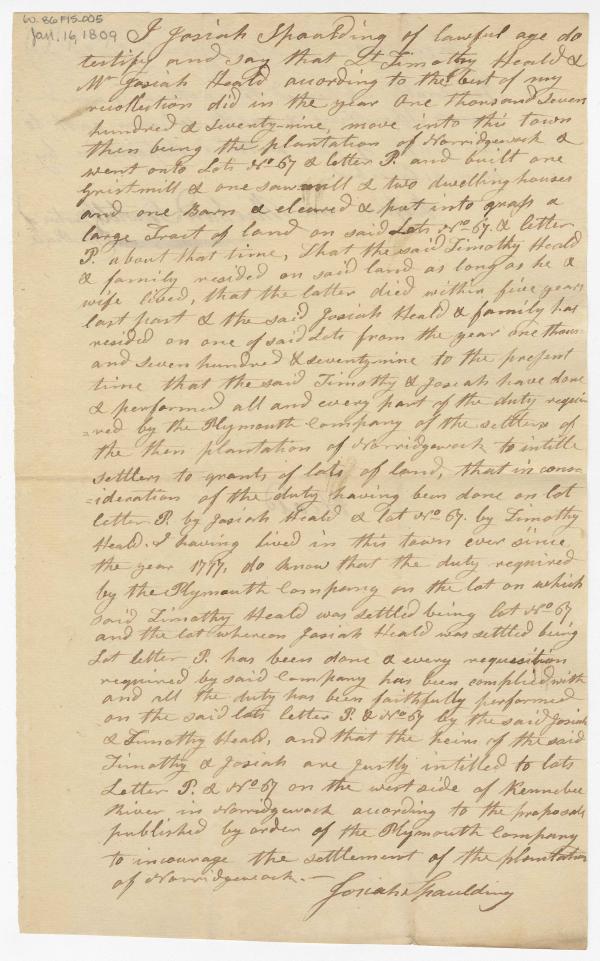 W. 86 F15.005
Jan. 16, 1809
I Josiah Spaulding of lawful age do
testify and say that Lt. Timothy Heald &
Mr. Josiah Heald according to the best of my
recollection did in the year One thousand Seven
hundred & Seventy-nine, move into this town
then being the plantation of Norridgewock &
went onto Lots No. 67 & letter P. and built one
Gristmill & one sawmill & two dwellinghouses
and one Barn & cleared & put into grass a
large Tract of land on said Lots No. 67. & letter
P. about that time, That the said Timothy Heald
& family resided on said land as long as he &
wife lived, that the latter died within five years
last past & the said Josiah Heald & family has
resided on one of said Lots from the year one thous-
and seven hundred & seventy-nine to the present
time that the said Timothy & Josiah have done
& performed all and every part of the duty requi-
=red by the Plymouth Company of the settlers of
the then plantation of Norridgewock to intitle
settlers to grants of lots of land, that in cons-
=ideration of the duty having been done on lot
letter P. by Josiah Heald & lot No. 67. by Timothy
Heald. I having lived in this town ever since
the year 1777, do know that the duty required
by the Plymouth Company on the lot on which
said Timothy Heald was settled being lot No. 67
and the lot whereon Josiah Heald was settled being
Lot letter P. has been done & every requisition
required by said Company has been complied with
and all the duty has been faithfully performed
on the said lots letter P. & No. 67 by the said Josiah
& Timothy Heald, and that the heirs of the said
Timothy & Josiah are justly intitled to lots
Letter P. & No. 67 on the west side of Kennebec
River in Norridgewock according to the proposals
published by order of the Plymouth Company
to incourage the settlement of the plantation
of Norridgewock.—
Josiah Spaulding